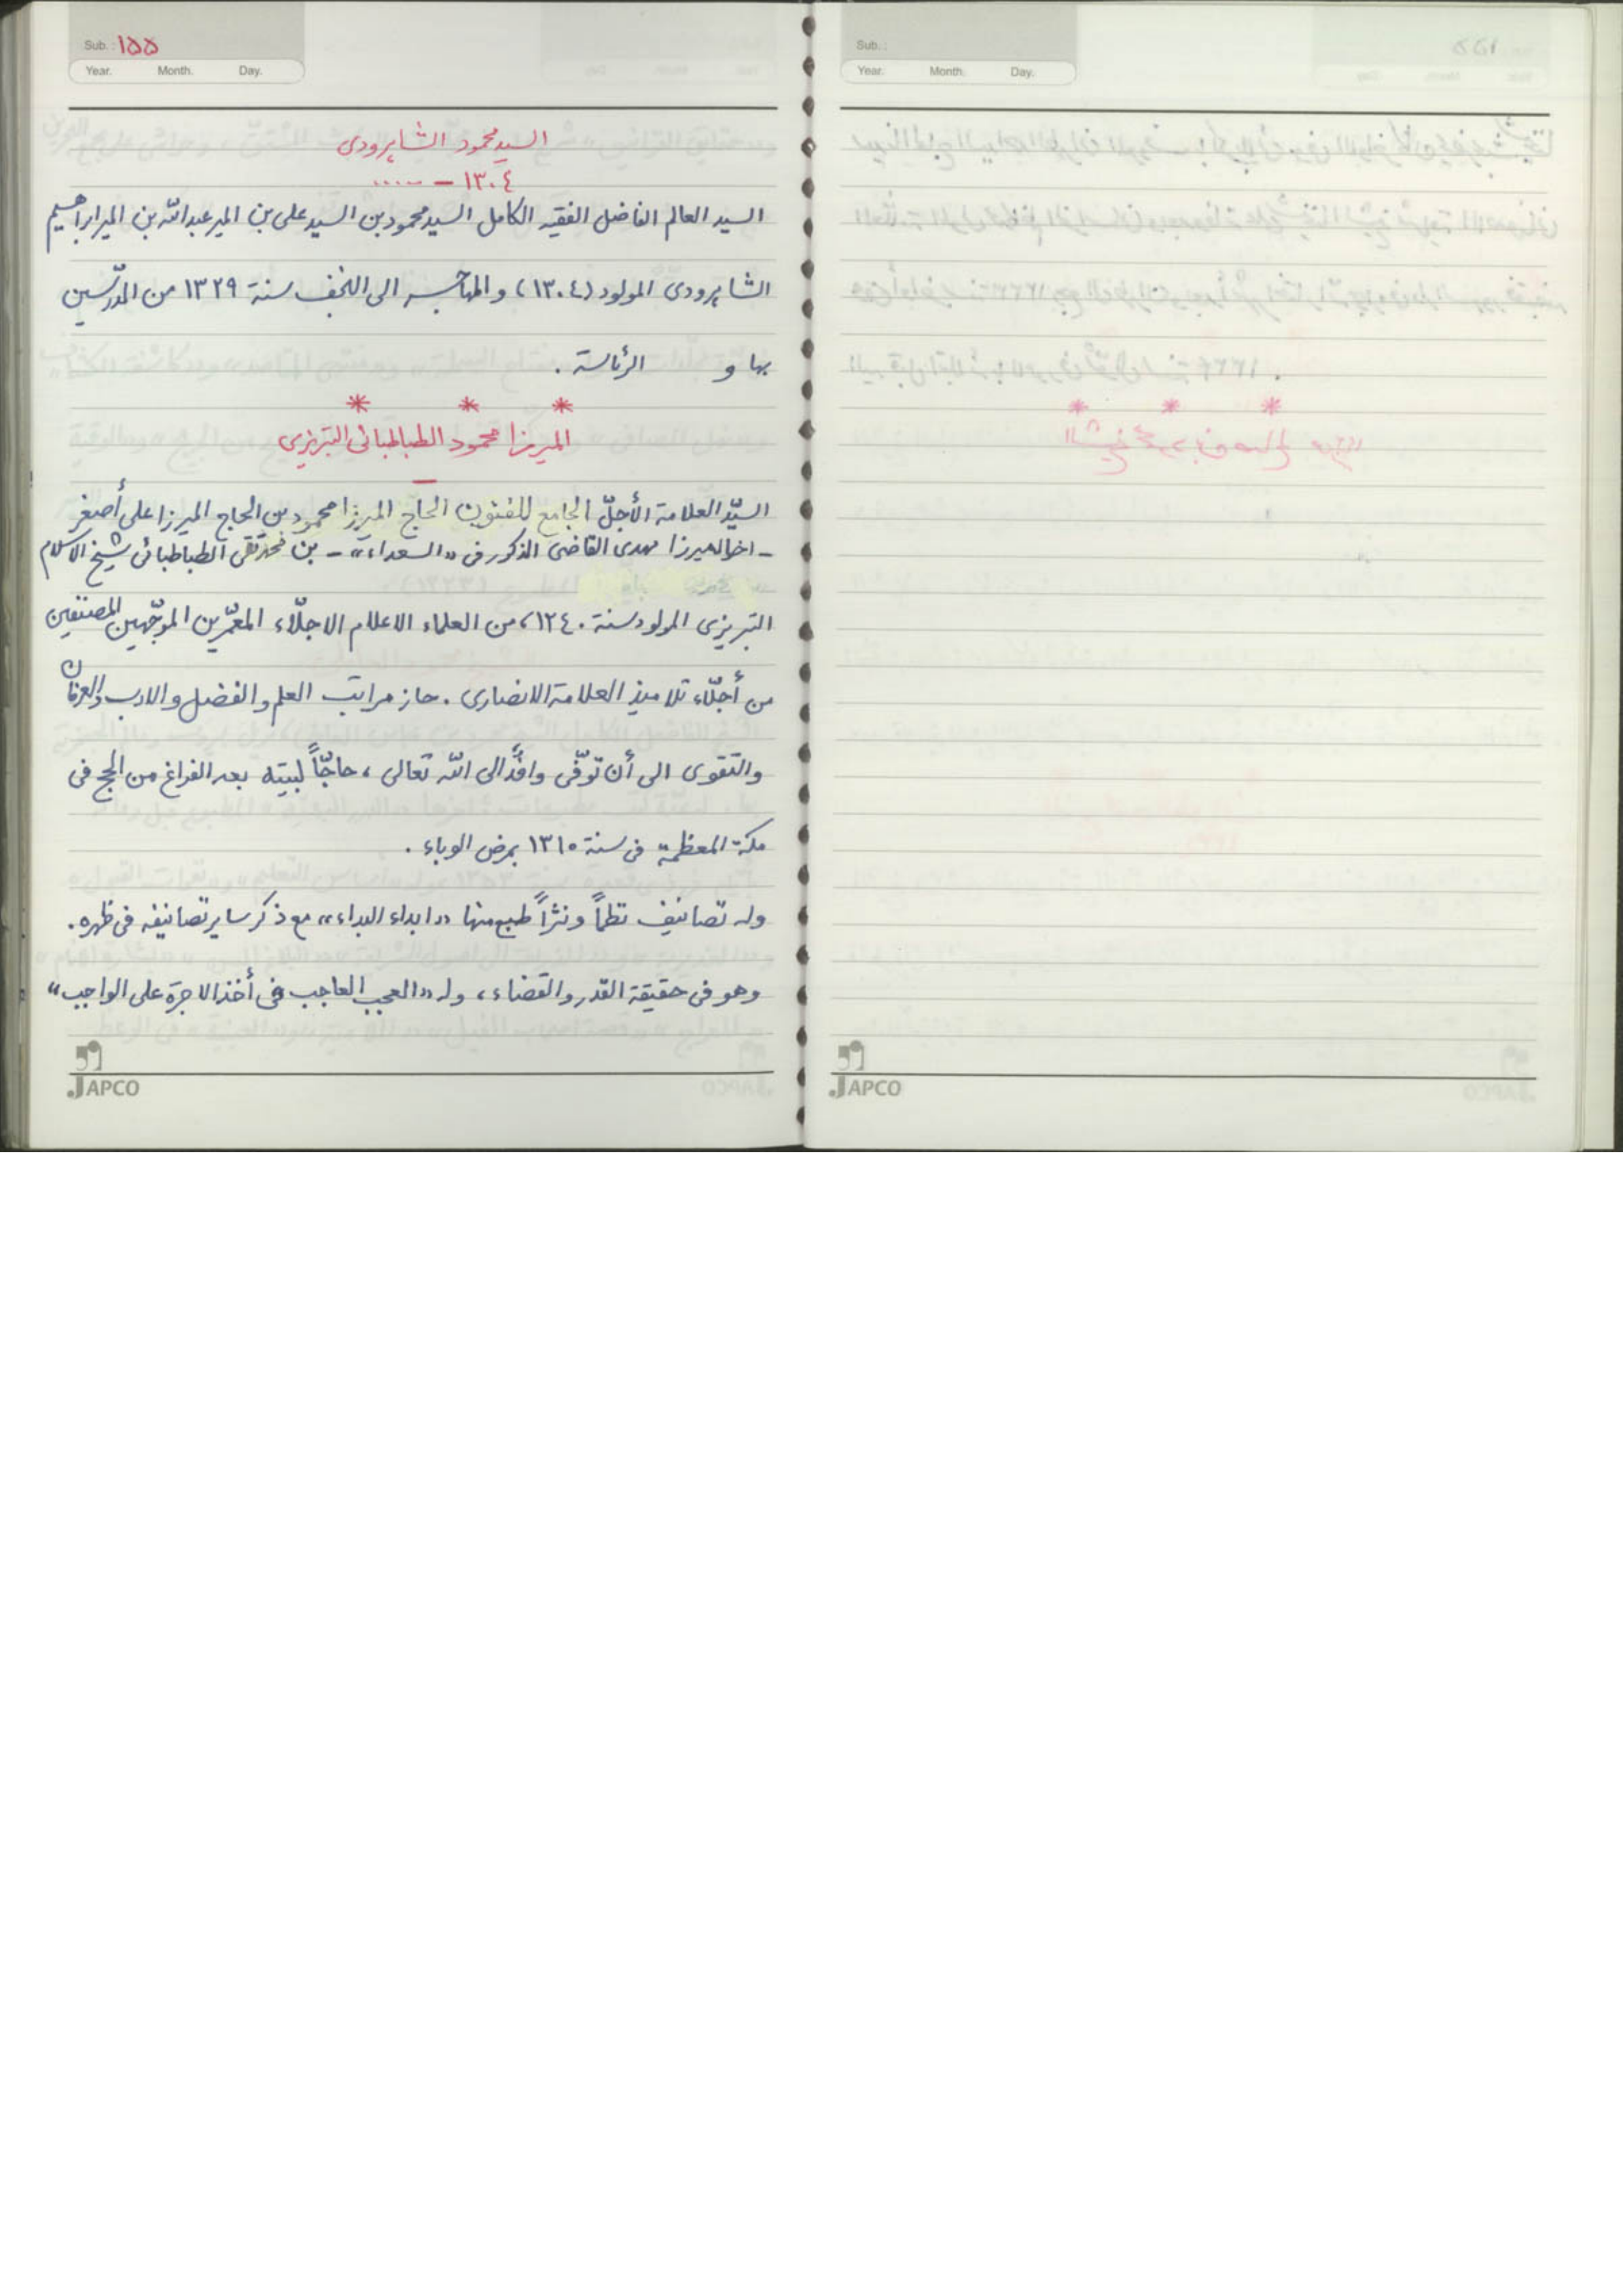 Sub. : ١٥٥
Year. Month. Day.
السيد محمود الشاهرودى
١٣٠٤ – ....
السيد العالم الفاضل الفقيه الكامل السيد محمود بن السيد على بن المير عبدالله بن الميرابراهيم
الشاهرودى المولود (١٣٠٤) و المهاجر الى النجف سنة ١٣٢٩ من المدرّسين
بها و الرئاسة .
* * *
الميرزا محمود الطباطبائى التبريزى
السيّد العلامة الأجلّ الجامع للفنون الحاج الميرزا محمود بن الحاج الميرزا على أصغر
- اخا الميرزا مهدى القاضى المذكور فى «السعداء» - بن محمد تقى الطباطبائى شيخ الاسلام
التبريزى المولود سنة ١٢٤٠، من العلماء الاعلام الاجلّاء المعمّرين الموجّهين المصنّفين
من أجلّاء تلاميذ العلامة الانصارى . حاز مراتب العلم و الفضل و الادب والعرفان
والتقوى الى أن توفّى وافداً الى الله تعالى ، حاجّاً لبيته بعد الفراغ من الحج فى
مكة المعظمة فى سنة ١٣١٠ بمرض الوباء .
وله تصانيف نظماً ونثراً طبع منها «ابداء البداء» مع ذكر ساير تصانيفه فى ظهره .
وهو فى حقيقة القدر والقضاء ، وله «العجب العاجب فى أخذ الاجرة على الواجب»
JAPCO
Sub. :
Year. Month. Day.
JAPCO